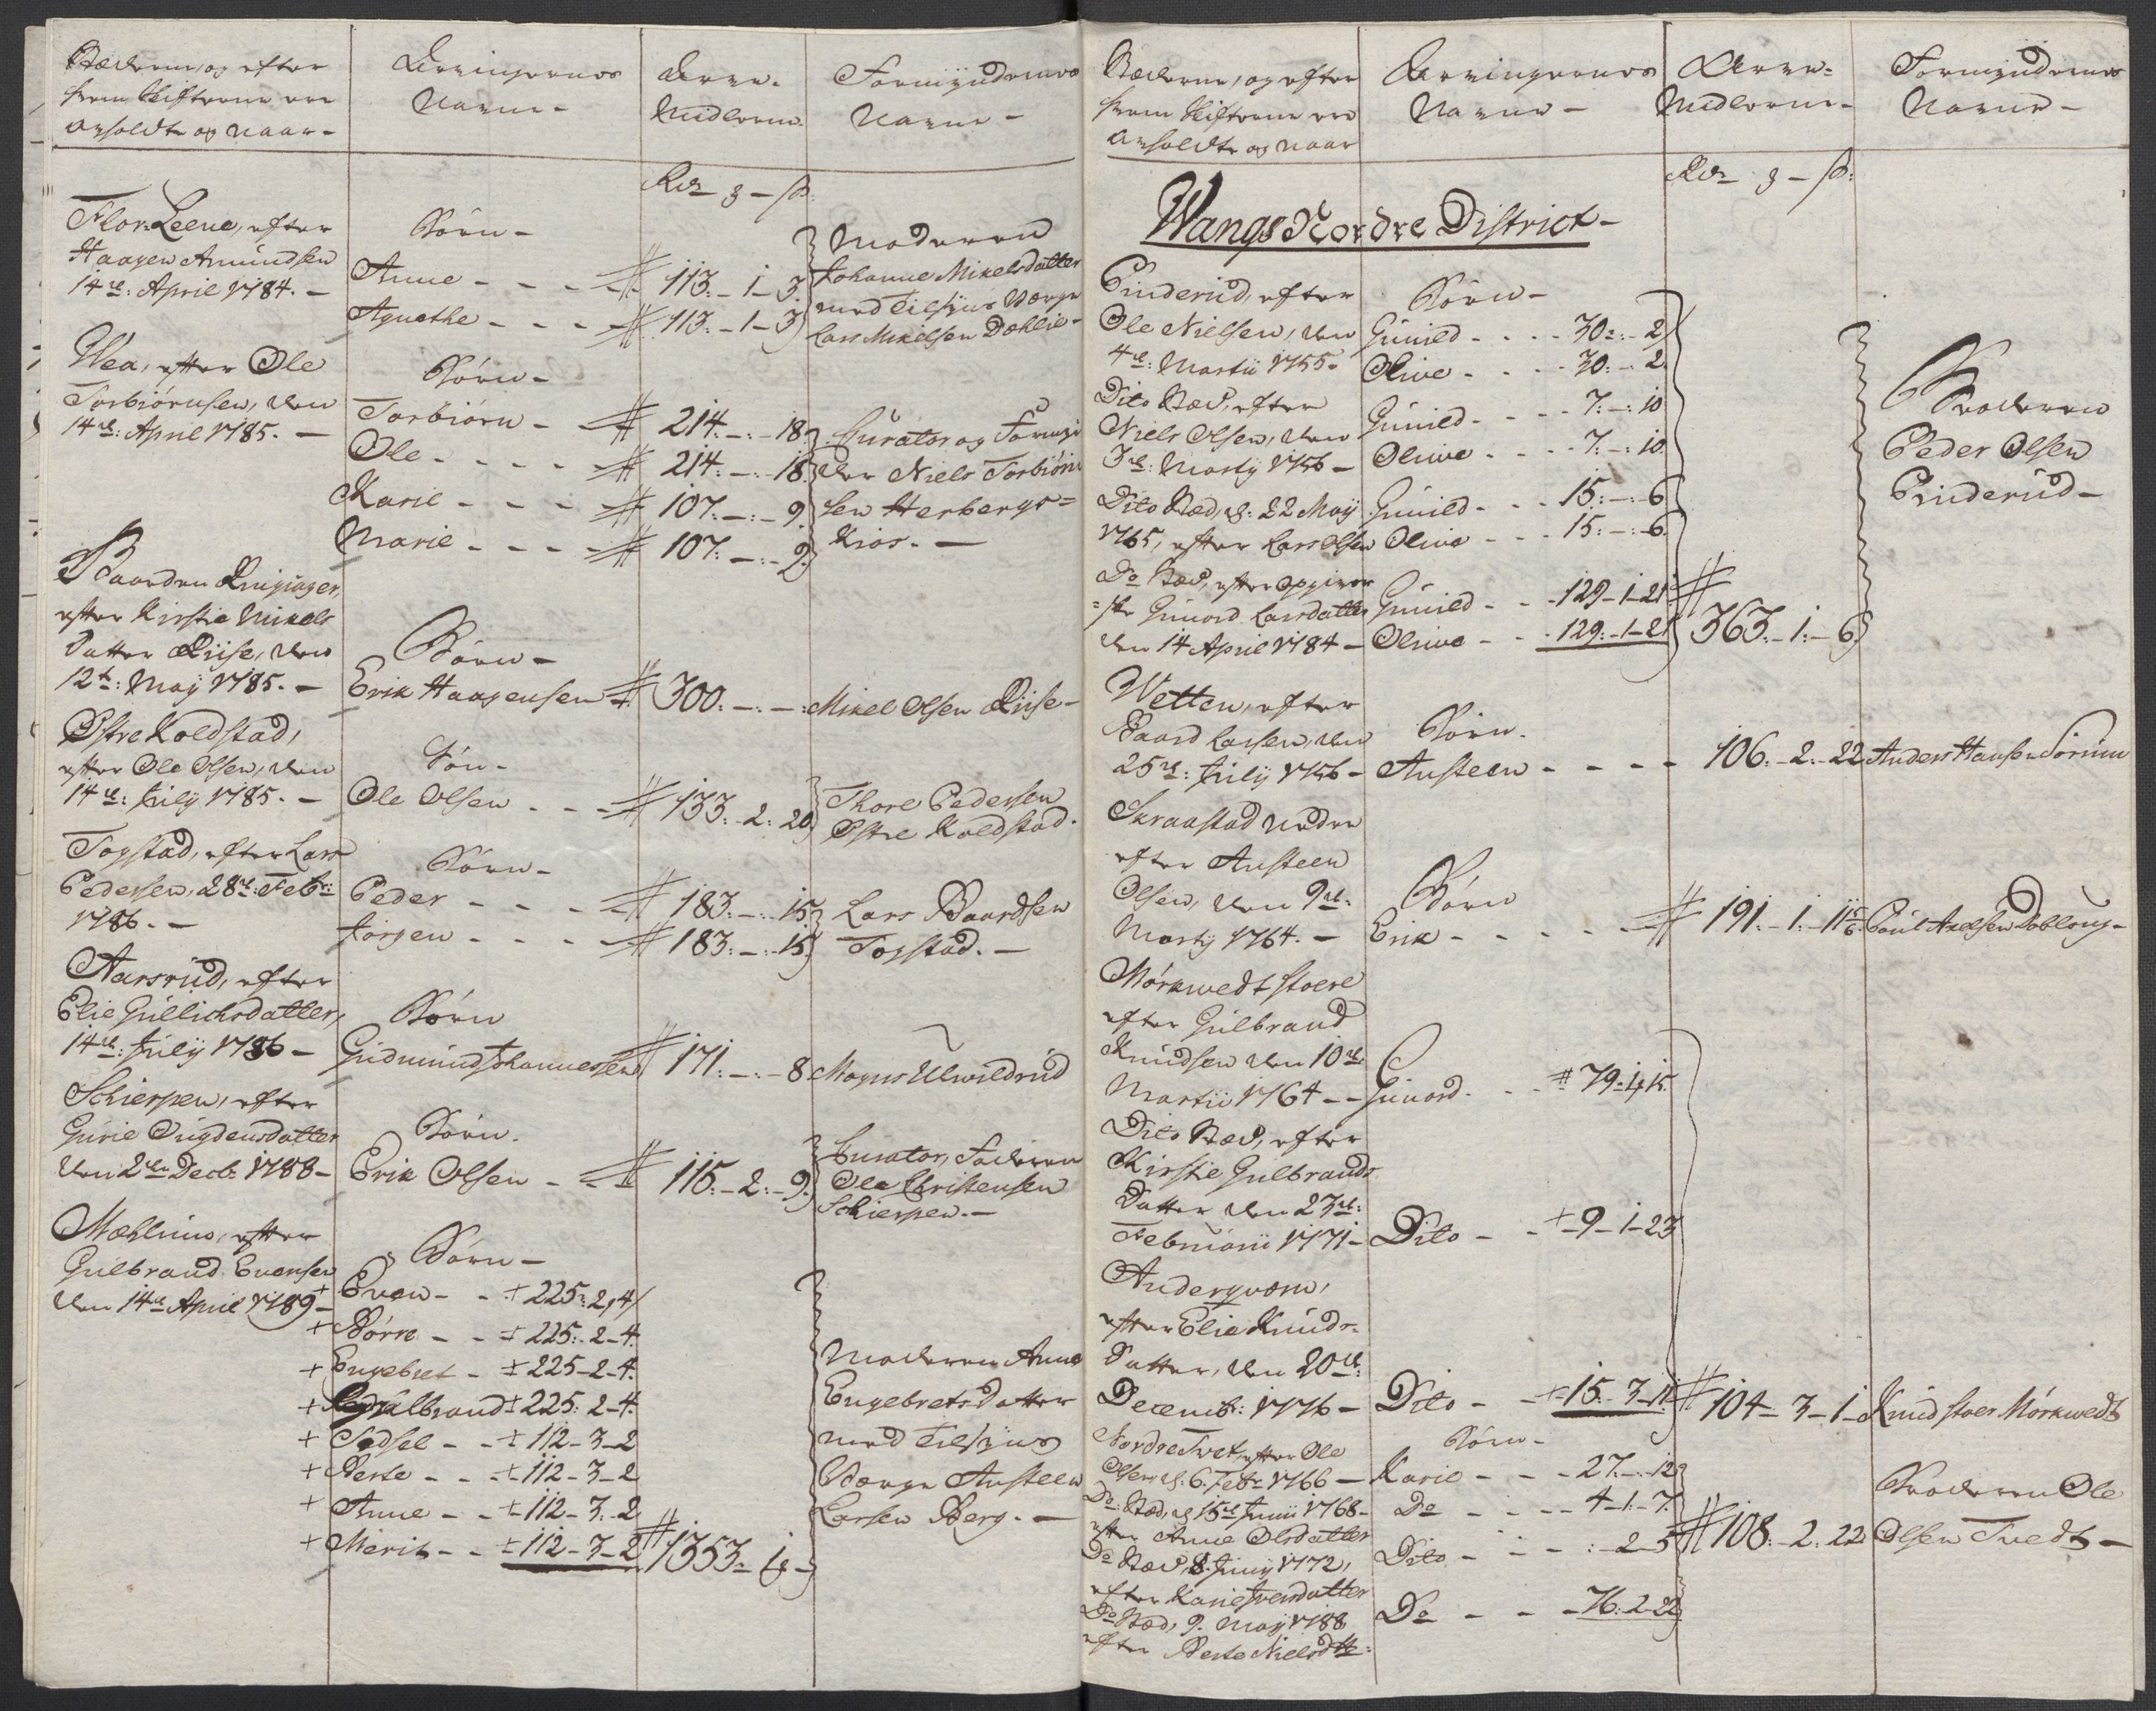 Stæderne, og efter
hvem Skifterne ere
anholdte og naar -
Arvingernes
Navne -
Arve-
Midlerne
Formyndernes
Navne -
Rdr - ß
Flor Leene, efter
Haagen Amundsen
14de: April 1784. -
Børn -
Anne - - - # 113. - 1 - 3.
Agnethe - - - # 113. - 1 - 3
Moderen
Johanne Mikelsdatter
med Tilsyns Værge
Lars Mikelsen Dæhlie -
Wea, efter Ole
Torbiørnsen, den
14de: April 1785. -
Børn -
Torbiørn - # 214. - : - 18
Ole - - - - # 214. - : - 18
Karie - - - # 107. - : - 9
Marie - - - # 107. - : - 9
Curator og Formyn
der Niels Torbiørn
sen Herbergs=
Kior. -
Baarden
efter Kirstie Mikels
Datter Riise, den
12te: Maij 1785. -
Børn -
Erik Haagensen # 300. - : - :
Mikel Olsen Riise -
Østre Koldstad,
efter Ole Olsen, den
14de: Julij 1785. -
Søn -
Ole Olsen - - - # 133. - 2: 20
Thore Pedersen
Østre Koldstad.
Togstad, efter Lars
Pedersen, 28de: Febr:
1786. -
Børn -
Peder - - - - # 183. - : - 15
Jørgen - - - - # 183. - : - 15
Lars Baardsen
Togstad. -
Aarsrud, efter
Elie Gullichsdatter,
14de: Julij 1786 -
Børn
Gudmund Johannessen # 171. - : - 8
Mogens Ulwildrud
Schierpen, efter
Gurie Øugdensdatter
den 2den Decb: 1788 -
Børn.
Erik Olsen - - # 115. - 2: - 9
Curator, Faderen
Ole Christensen
Schierpen. -
Mæhlum, efter
Gulbrand Evensen
den 14de April 1789 -
Børn -
+ Even - - + 225: 2, 4
+ Børre - - + 225. - 2 - 4.
+ Engebret - + 225 - 2 - 4.
+ Gulbrand + 225. 2 - 4.
+ Sidsel - - + 112 - 3 - 2
+ Berte - - + 112 - 3 - 2
+ Anne - - + 112 - 3. - 2
+ Merit - - + 112 - 3 - 2
# 1353. - -
Moderen Anne
Engebrets Datter
med Tilsyns
Værge Austeen
Larsen Berg. -
Stæderne, og efter
hvem Skifterne ere
anholdte og naar
Arvingernes
Navne -
Arve=
Midlerne -
Formyndernes
Navne -
Rdr - ß:
Wangs Nordre District -
Pinderud, efter
Ole Nielsen, den
4de: Martii 1755 -
Børn -
Gunild - - - - 30: - : 2
Olive - - - - 30: - : 2.
Dito Stæd, efter
Niels Olsen, den
3de: Martij 1756 -
Gunild - - - - 7: - : 10
Olive - - - - 7: - : 10.
Dito Stæd, d: 22 Maij
1765, efter Lars Olsen
Gunild - - - 15: - : 6
Olive - - - 15: - : 6.
Do Stæd, efter opgivor
=ste Gunord Larsdatter
den 14 April 1784 -
Gunild - - - 129 - 1 - 21
Olive - - - 129: - 1 - 21
# 363. - 1: - 6
Broderen
Peder Olsen
Pinderud -
Wetten, efter
Baard Larsen, den
25de: Julij 1756 -
Børn.
Austeen - - - - 106. - 2. - 22
Anders Hansen Sørum
Skraastad nedre
efter Austeen
Olsen, den 9de:
Martij 1764. -
Børn
Erik - - - - # 191. - 1. - 11 5/6
Poul Axelsen Dobloug -
Mørkwedt stoere
efter Gulbrand
Knudsen den 10de
Martii 1764 - -
Gunord - - - # 79 - 1, 15
Dito Stæd, efter
Kirstie Gulbrands
Datter den 23de:
Februarii 1771 -
Dito - - + 9 - 1 - 23
Anderqværn,
efter Elie Knuds-
Datter, den 20de:
Decembr: 1776 -
Dito - - + 15. - 3 - 11
# 104 - 3 - 1
Knud stoer Mørkwedt
Nordre Twet, efter Ole
Olsen, d. 6. Febr 1766 -
Børn -
Karie - - - 27. - : 12
Do Stæd, d 15de Junii 1768 -
efter Anne Olsdatter
Do - - - 4 - 1 - 7
Do Stæd, 8. Junij 1772,
efter Karie Iversdatter
Dito - - - : - 2 - 5
Do Stæd, 9. Maij 1788
efter Berte Nielsdtr:
Do - - - 76. 2 - 22
# 108. - 2. 22
Broderen Ole
Olsen Twedt -